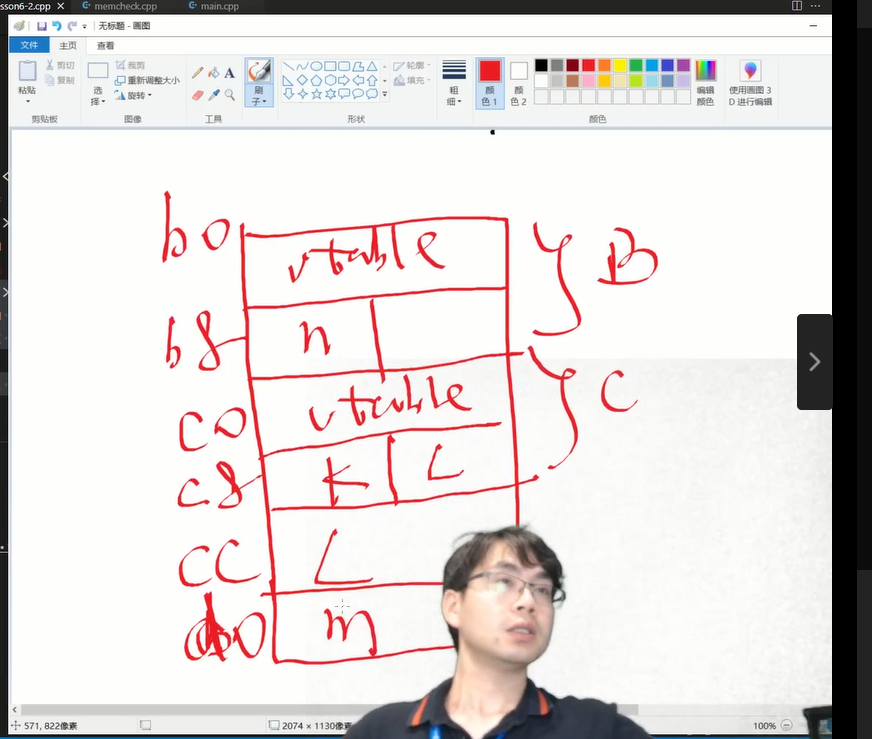 sson6-2.cpp × memcheck.cpp main.cpp
无标题 - 画图
文件 主页 查看
粘贴 剪切 复制 选择 裁剪 重新调整大小 旋转 A 刷子 轮廓 填充 粗细 颜色 1 颜色 2 编辑颜色 使用画图 3D 进行编辑
剪贴板 图像 工具 形状 颜色
b0 vtable B
b8 n
c0 vtable C
c8 k L
cc L
d0 m
571, 822像素 2074 × 1130像素 100%